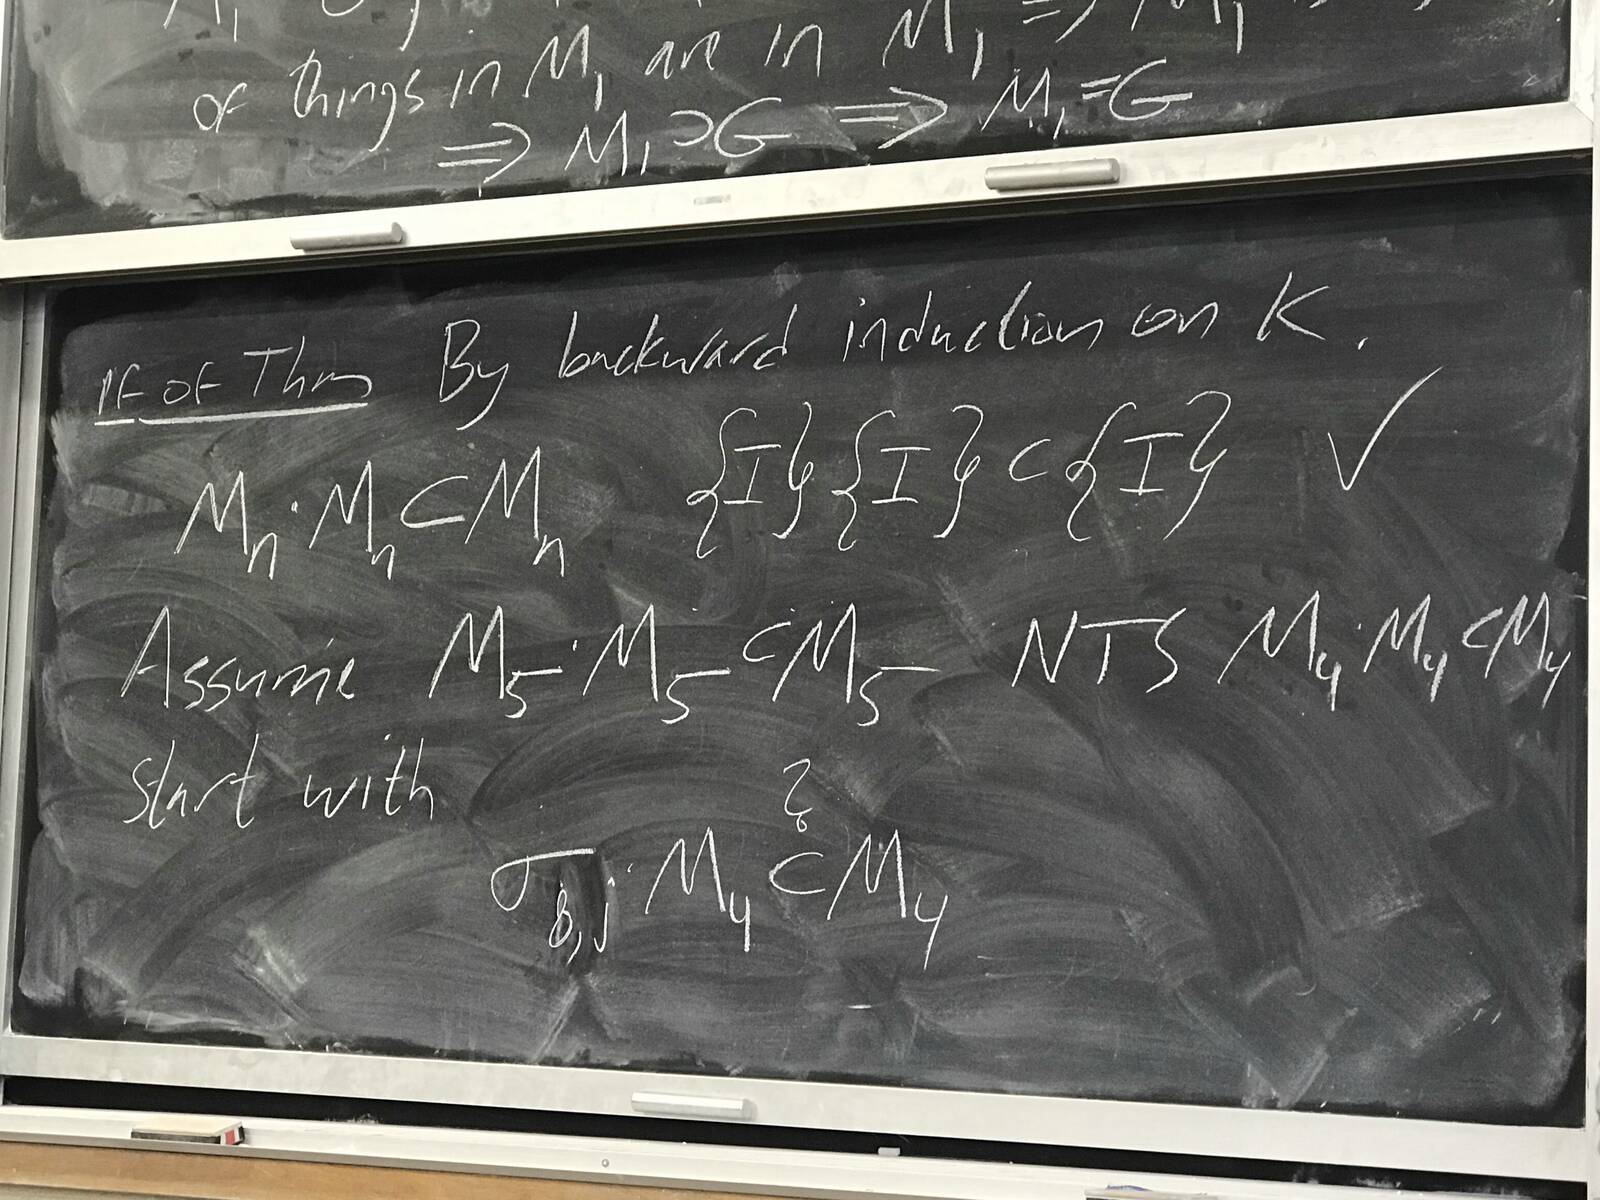 of things in M₁ are in M₁ ⇒ M₁
⇒ M₁ ⊃ G ⇒ M₁ = G
Pf of Thm By backward induction on K.
Mₙ·Mₙ ⊂ Mₙ {I}{I} ⊂ {I} ✓
Assume M₅·M₅ ⊂ M₅ NTS M₄·M₄ ⊂ M₄
Start with
?
σ₈,ⱼ·M₄ ⊂ M₄